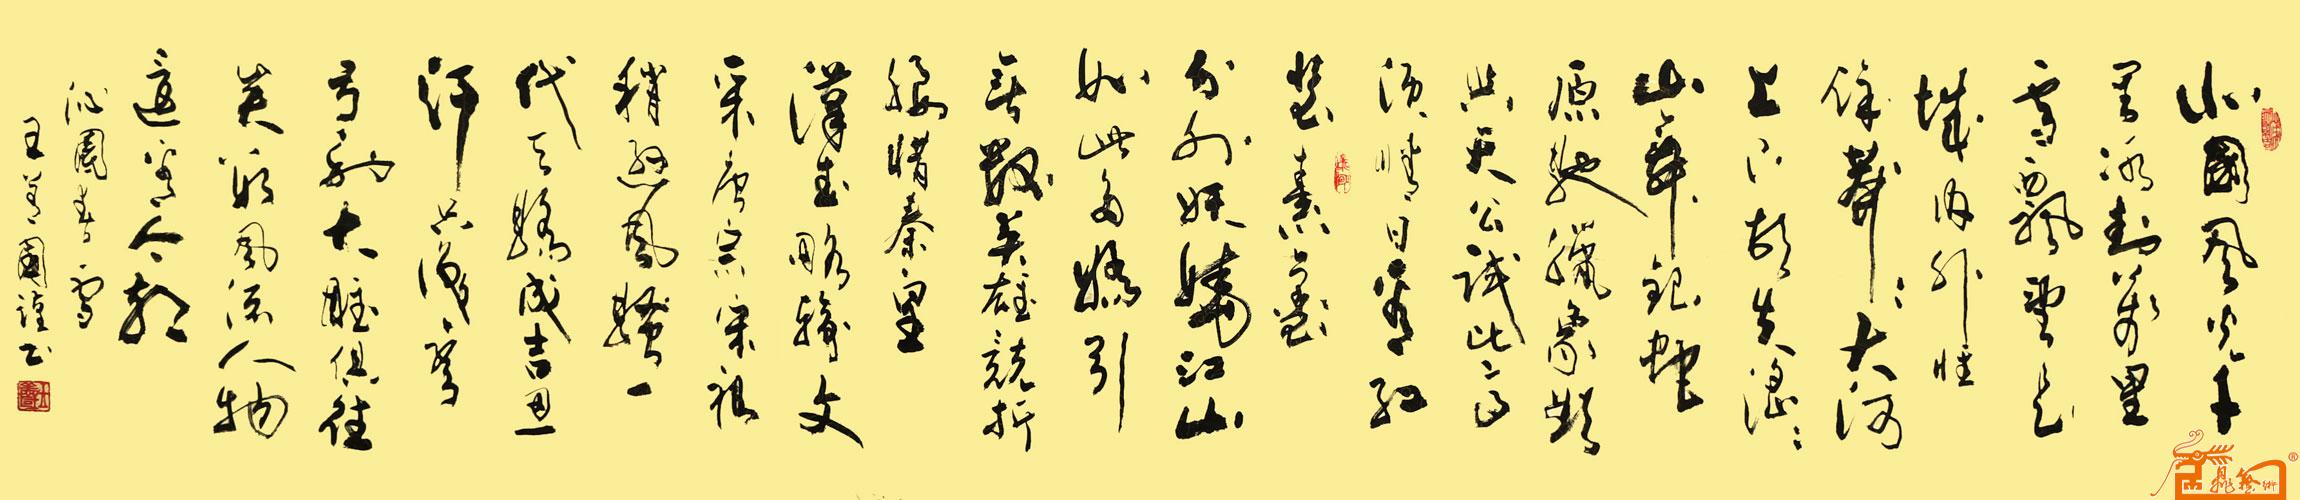 北國風光千
里冰封萬里
雪飄望長
城內外惟
餘莽〻大河
上下頓失滔〻
山舞銀蛇
原馳蠟象欲
與天公試比高
須晴日看紅
裝素裹
分外妖嬈江山
如此多嬌引
無數英雄競折
腰惜秦皇
漢武略輸文
采唐宗宋祖
稍遜風騷一
代天驕成吉思
汗只識彎
弓射大雕俱往
矣數風流人物
還看今朝
沁園春雪
王國謹書